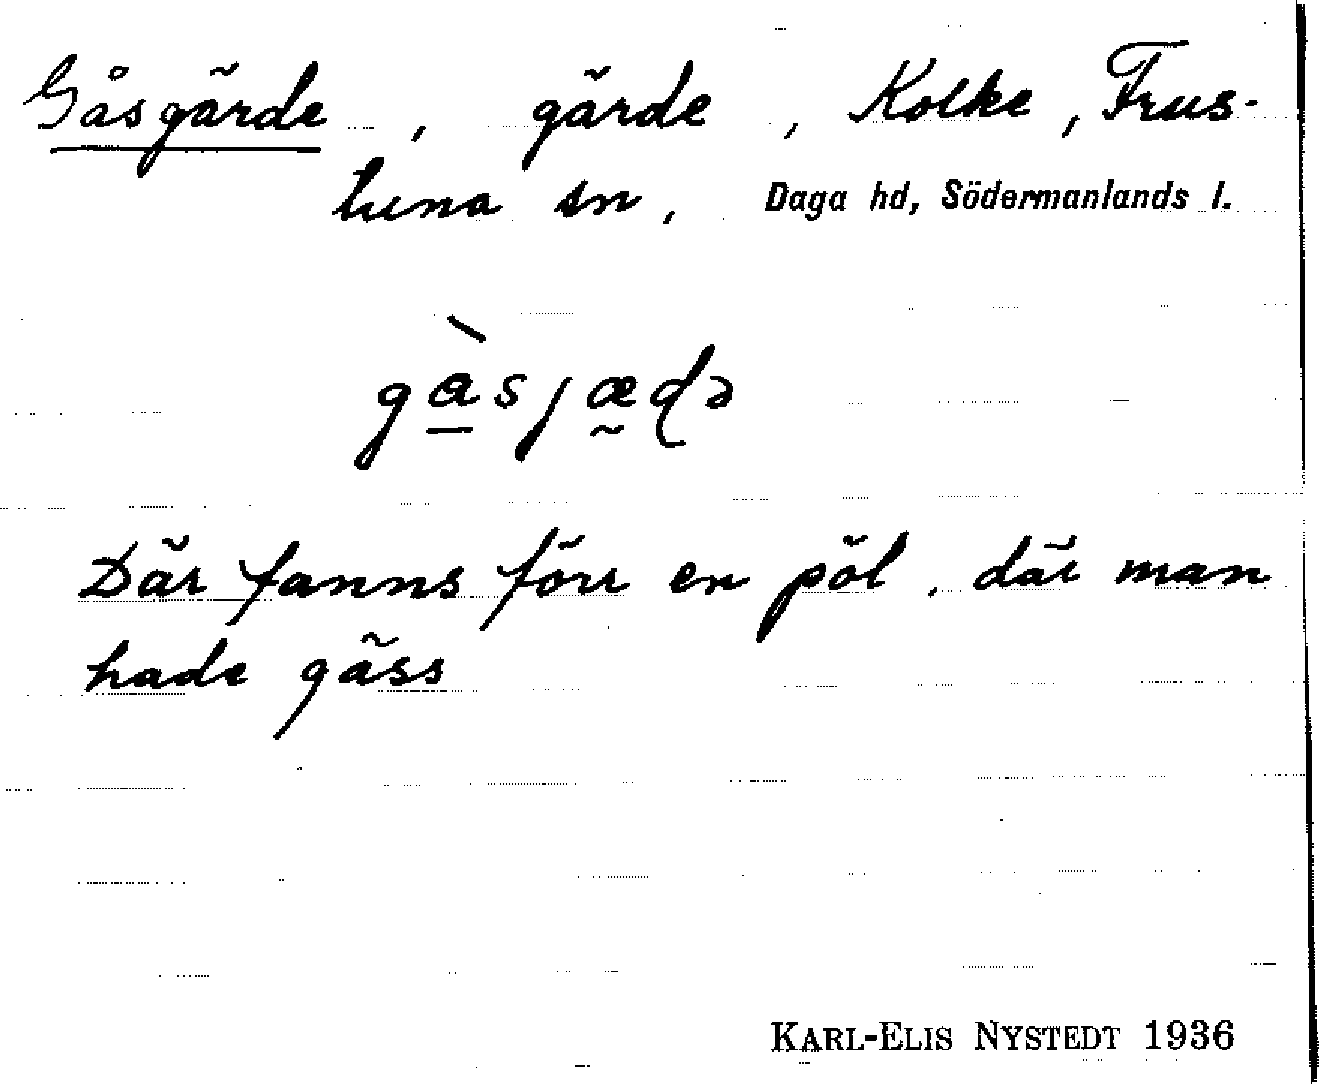 Gåsgärde, gärde, Kolke, Frus-
tuna sn, Daga hd, Södermanlands l.
gàsjæḍə
Där fanns förr en pöl, där man
hade gäss
KARL-ELIS NYSTEDT 1936